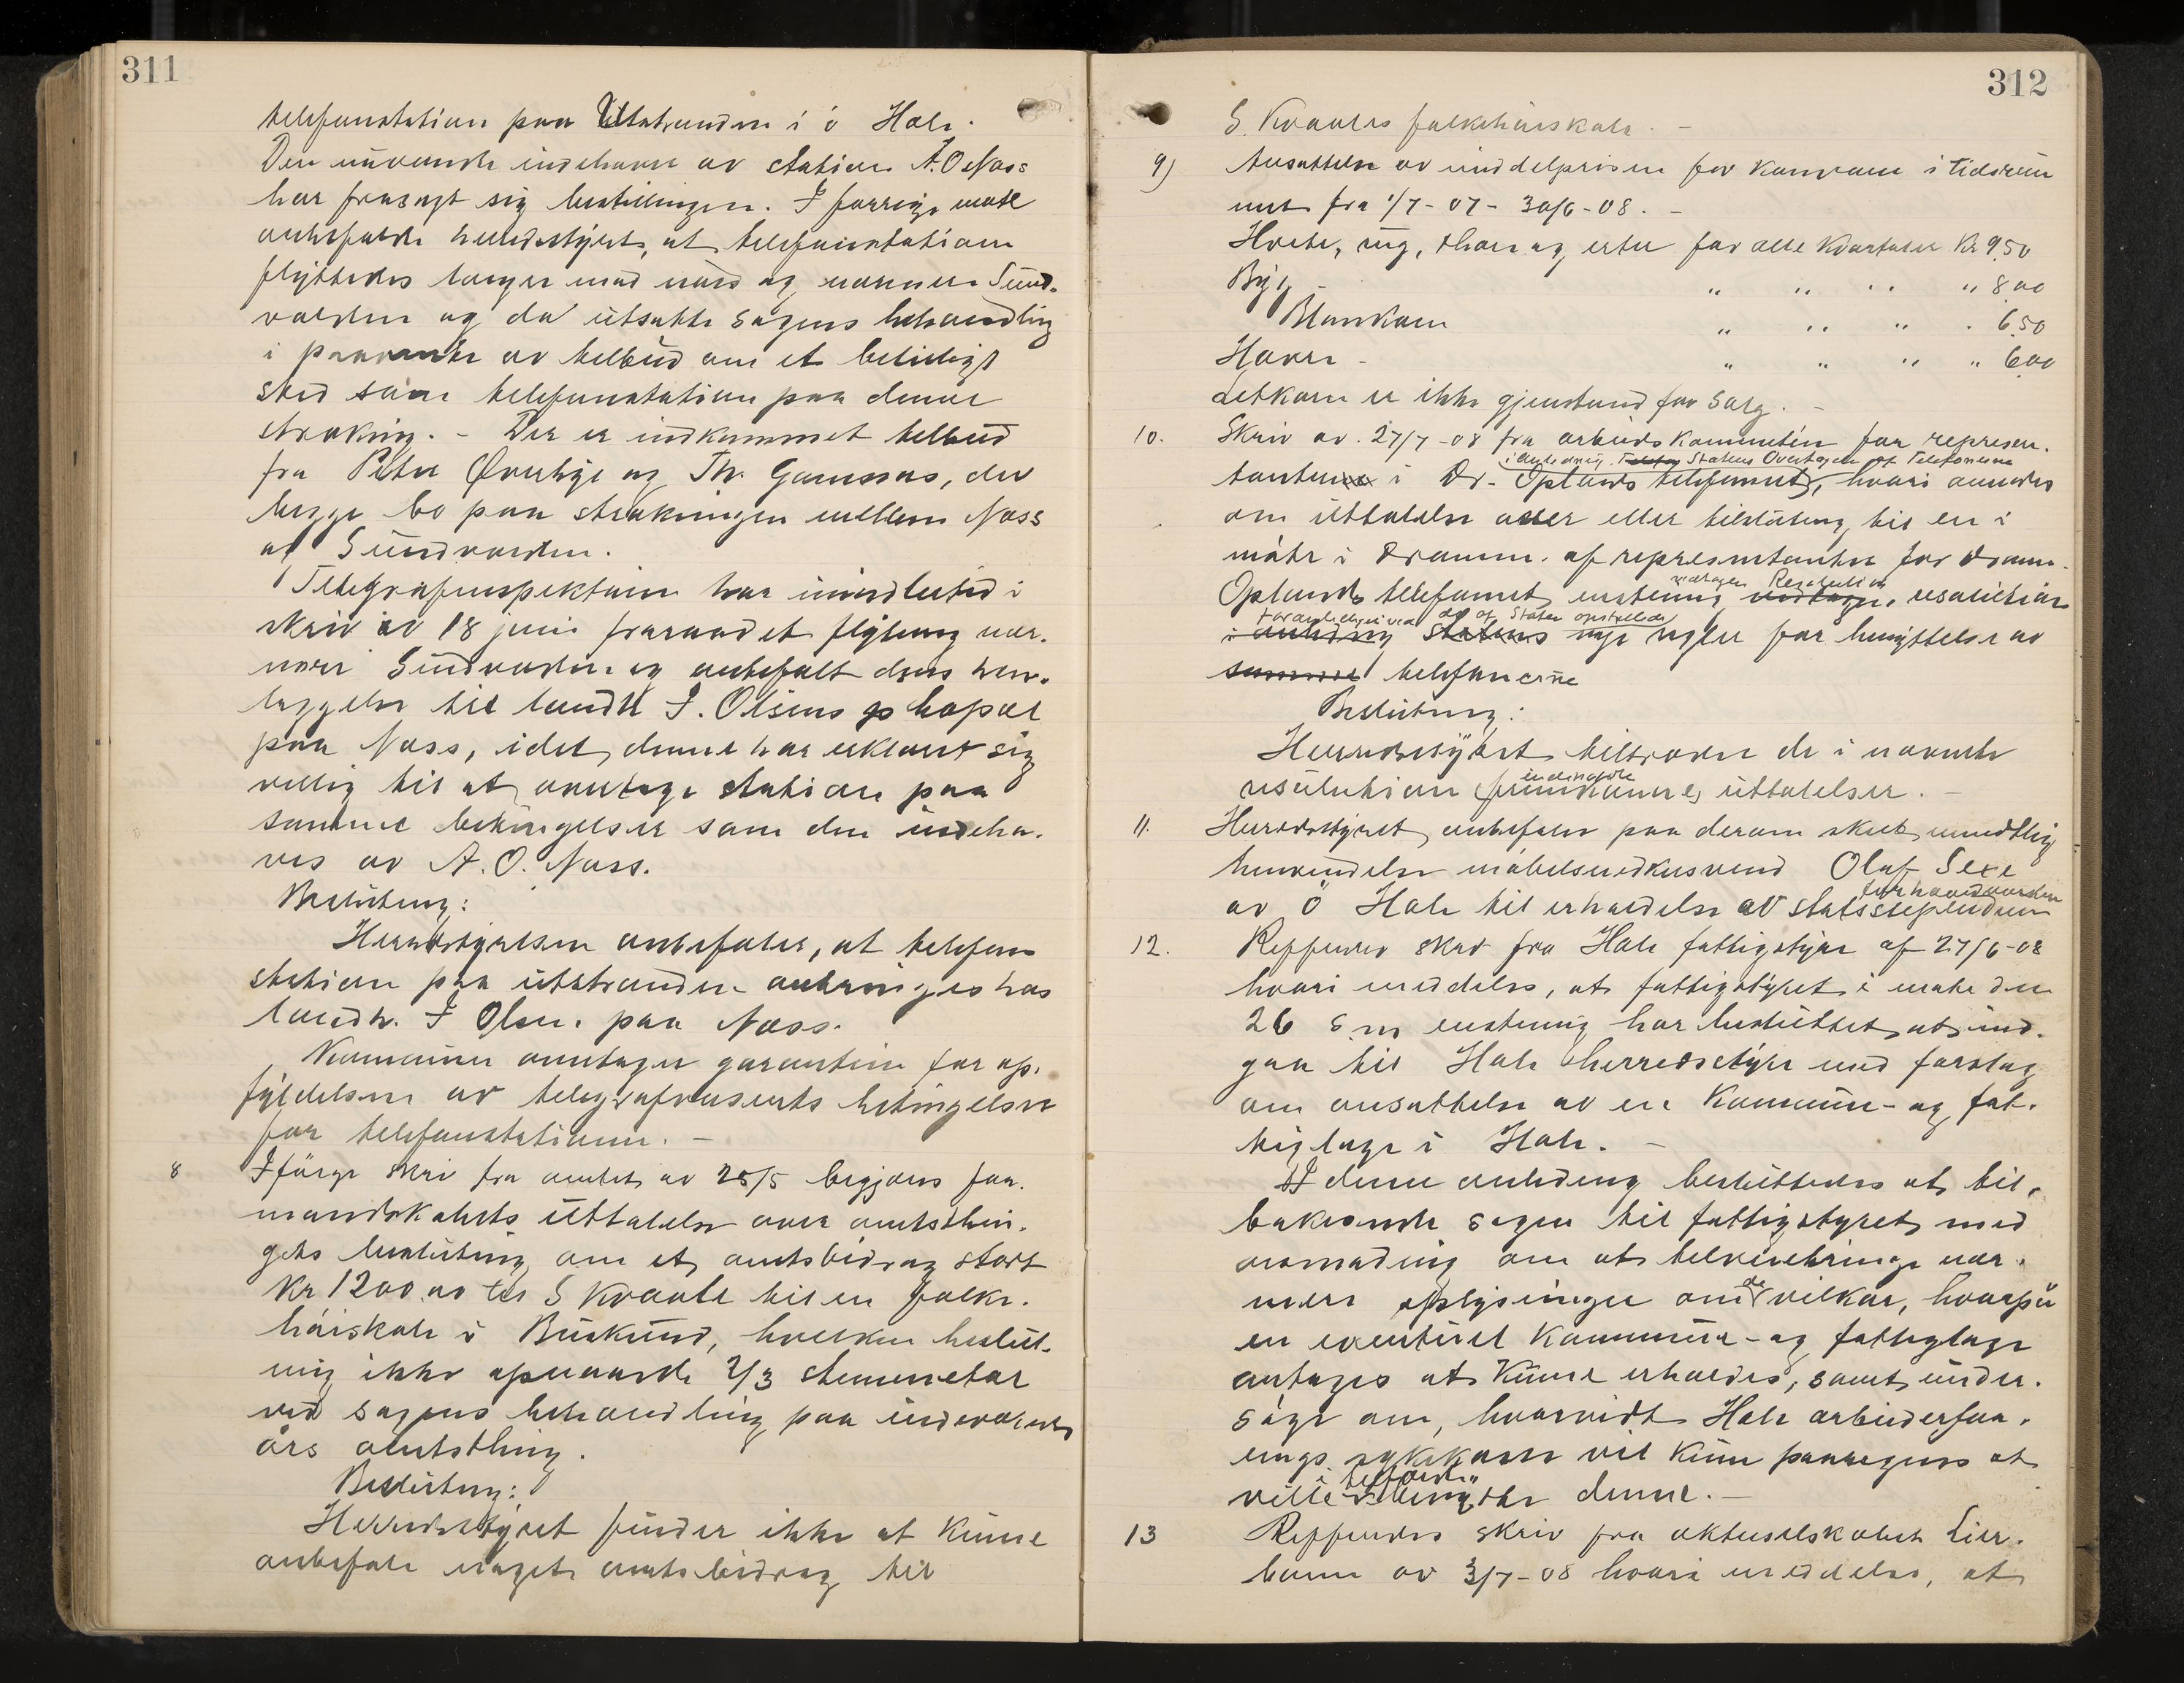 311
telefonstation paa Utstranden i ø Hole.
Den nuværende indehaver av station A. O Næss
har frasagt sig bestillingen. I forrige møte
anbefalede herredsstyret, at telefonstationen
flyttedes længer mod nord og nærmere Sund-
volden og da utsatte sagens behandling
i paavente av tilbud om et beleiligt
sted som telefonstation paa denne
strækning. - Der er indkommet tilbud
fra Peter og Th. Gomsnæs, der
begge bo paa strækningen mellem Næss
og Sundvolden.
Telegrafinspektøren har imidlertid i
skriv av 18 juni fraraadet flytning nær-
mere Sundvolden og anbefalt dens hen-
læggelse til landh J. Olsens lokal
paa Næss, idet denne har erklært sig
villig til at overtage station paa
samme betingelser som den indeha-
ves av A. O. Næss.
Beslutning:
Herredsstyrelsen anbefaler, at telefon
station paa utstranden anbringes hos
landh. J Olsen paa Næss.
Kommunen overtager garantien for op-
fyldelsen av telegrafvæsenets betingelser
for telefonstationen. -
8 Ifølge skriv fra amtet av 25/5 begjæres for-
mandskabets uttalelse over amtsthin-
gets beslutning om et amtsbidrag stort
Kr 1200.00 til S Kroale til en folke-
høiskole i Buskerud, hvilken beslut-
ning ikke opnaaede 2/3 stemmetal
ved sagens behandling paa indeværende
års amtsthing.
Beslutning:
Herredsstyret finder ikke at kunne
anbefale noget amtsbidrag til
312
S. Kroales folkehøiskole. -
9) Ansættelse av middelprisen for kornvarer i tidsrum
met fra 1/7-07 - 30/6-08. -
Hvete, rug, og erter for alle kvartaler Kr 9.50
Byg - " " " " 8.00
Blankorn " " " . 6.50
Havre - " " " " 6.00
Letkorn er ikke gjenstand for salg. -
10. Skriv av 27/7-08 fra arbeidskommiteen for represen-
i anledning Statens Overtagelse af Telefonerne
tanterne i Dr. Oplands telefonnet, hvori anmodes
om uttalelse over eller tilslutning til en i
møte i Dramm. af representanter for Dramm.
vedtagen Resolution
Oplands telefonnet enstemig vedtagen resolution
foranlediget ved de af Staten opstillede
i anledning Statens nye regler for benyttelse av
samme telefonerne
Beslutning:
Herredsstyret tiltræder de i nævnte
indeholdte
resolution fremkomne uttalelser. -
11. Herredsstyret anbefaler paa derom skeet mundtlig
henvendelse møbelsnedkersvend Olaf Sexe
for haandværkere
av ø Hole til erholdelse av statsstipendium
12. Refferert skriv fra Hole fattigstyre af 27/6-08
hvori meddeles, at fattigstyret i møte den
26 s.m enstemig har besluttet at ind-
gaa til Hole herredsstyre med forslag
om ansættelse av en kommune- og fat-
tiglæge i Hole. -
I denne anledning besluttedes at til-
bakesende sagen til fattigstyret med
anmodning om at tilveiebringe nær-
mere oplysninger om de vilkår, hvorpå
en eventuel kommune- og fattiglæge
antages at kunne erholdes, samt under-
søge om, hvorvidt Hole arbeiderfor-
enings sykekasse vil kunne paaregnes at
ville denne. -
13 Refferertes skriv fra aktieselskabet Lier-
banen av 3/7-08 hvori meddeles, at